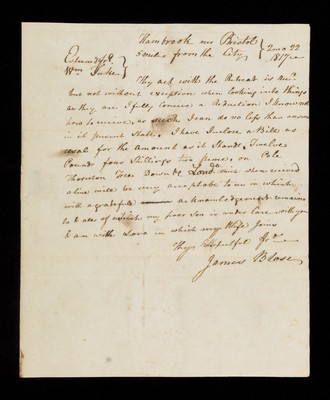 Hambrook near Bristol
5 miles from the City
2 mo 22
1817
Esteemed Frd
Wm Tuke
Thy acct with the Retreat is recd
but not without exception when looking into things
as they are I fully Conceive a Reduction I know not
how to receive, as such I can do no less than answer
it its present State. I have Inclosed a Bill as
usual for the Amount as it Stands, Twelve
Pounds four Shillings two pence, on Pole
Thornton Free Down & Co Londn which when received
a line will be very acceptable to us in which
with a grateful acknowledgement remains
to & all of which my poor Son is under care with you
& am with Love in which my Wife Joins
Thy respectful Frd
James Blase